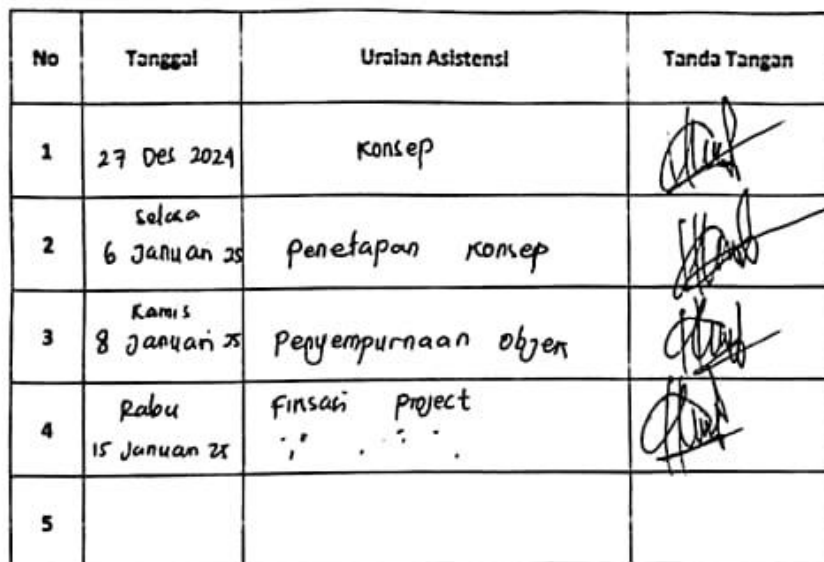 No Tanggal Uraian Asistensi Tanda Tangan
1 27 Des 2024 Konsep
Selasa
2 6 Januari 25 Penetapan Konsep
Kamis
3 8 Januari 25 Penyempurnaan Objek
4 Rabu Finsasi Project
15 Januari 25
5